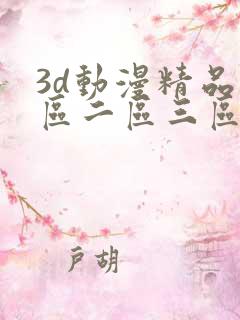 3d動漫精品
區二區三區
戶胡